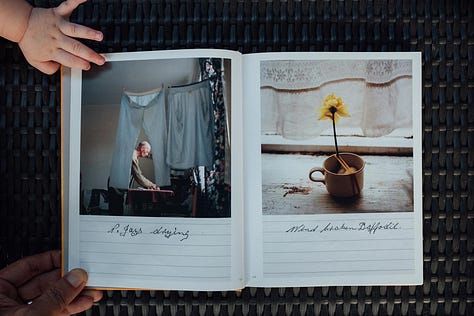 P. Jays drying
Wind broken Daffodil.